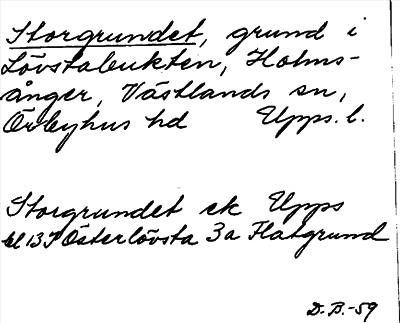 Storgrundet, grund i
Lövstabukten, Holms-
ånger, Västlands sn,
Örbyhus hd Upps. l.
Storgrundet ek Upps
bl 13 Österlövsta 3a Flatgrund
D.B.-59